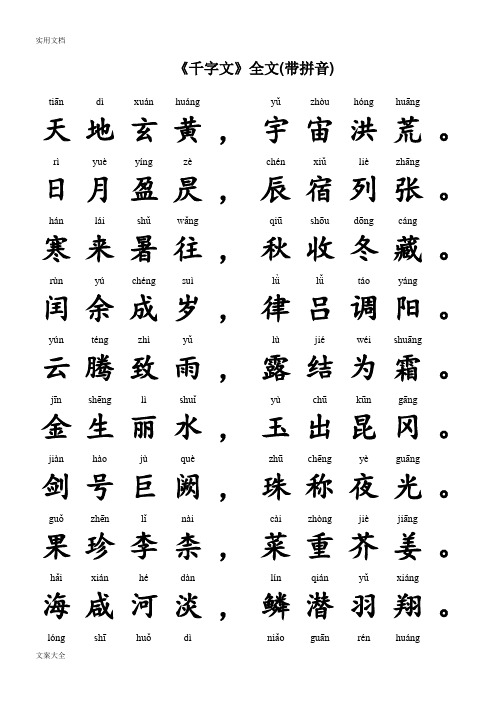 实用文档
《千字文》全文(带拼音)
tiān dì xuán huáng yǔ zhòu hóng huāng
天地玄黄，宇宙洪荒。
rì yuè yíng zè chén xiǔ liè zhāng
日月盈昃，辰宿列张。
hán lái shǔ wǎng qiū shōu dōng cáng
寒来暑往，秋收冬藏。
rùn yú chéng suì lǜ lǚ táo yáng
闰余成岁，律吕调阳。
yún téng zhì yǔ lù jié wéi shuāng
云腾致雨，露结为霜。
jīn shēng lì shuǐ yù chū kūn gāng
金生丽水，玉出昆冈。
jiàn hào jù què zhū chēng yè guāng
剑号巨阙，珠称夜光。
guǒ zhēn lǐ nài cài zhòng jiè jiāng
果珍李柰，菜重芥姜。
hǎi xián hé dàn lín qián yǔ xiáng
海咸河淡，鳞潜羽翔。
lóng shī huǒ dì niǎo guān rén huáng
文案大全